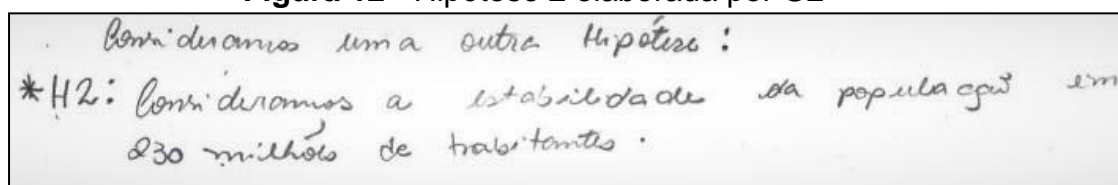 Figura 12 - Hipótese 2 elaborada por G2
. Consideramos uma outra Hipótese :
* H2: Consideramos a estabilidade da população em
230 milhões de habitantes .